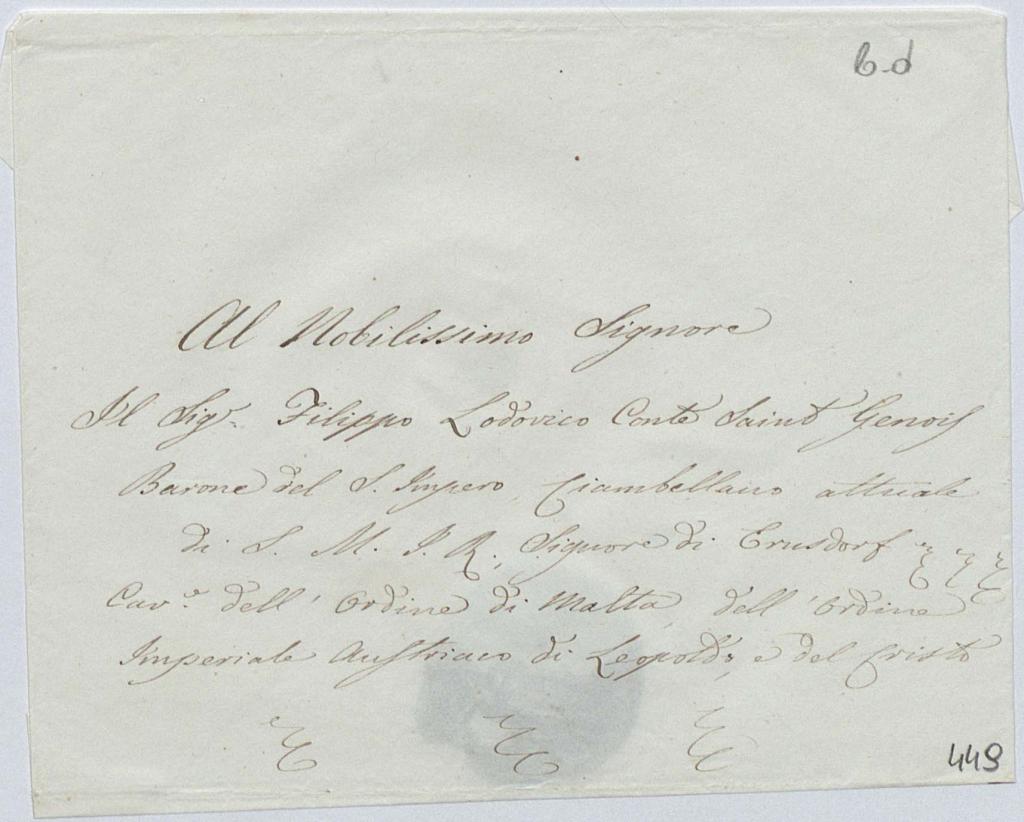 6-d
Al Nobilissimo Signore
Il Sigr. Filippo Lodovico Conte Saint Genois
Barone del S. Impero, Ciambellano attuale
di S. M. I. R., Signore di Ernsdorf &c &c &c
Cavre. dell' Ordine di Malta, dell' Ordine
Imperiale Austriaco di Leopoldo, e del Cristo
&c &c &c
449